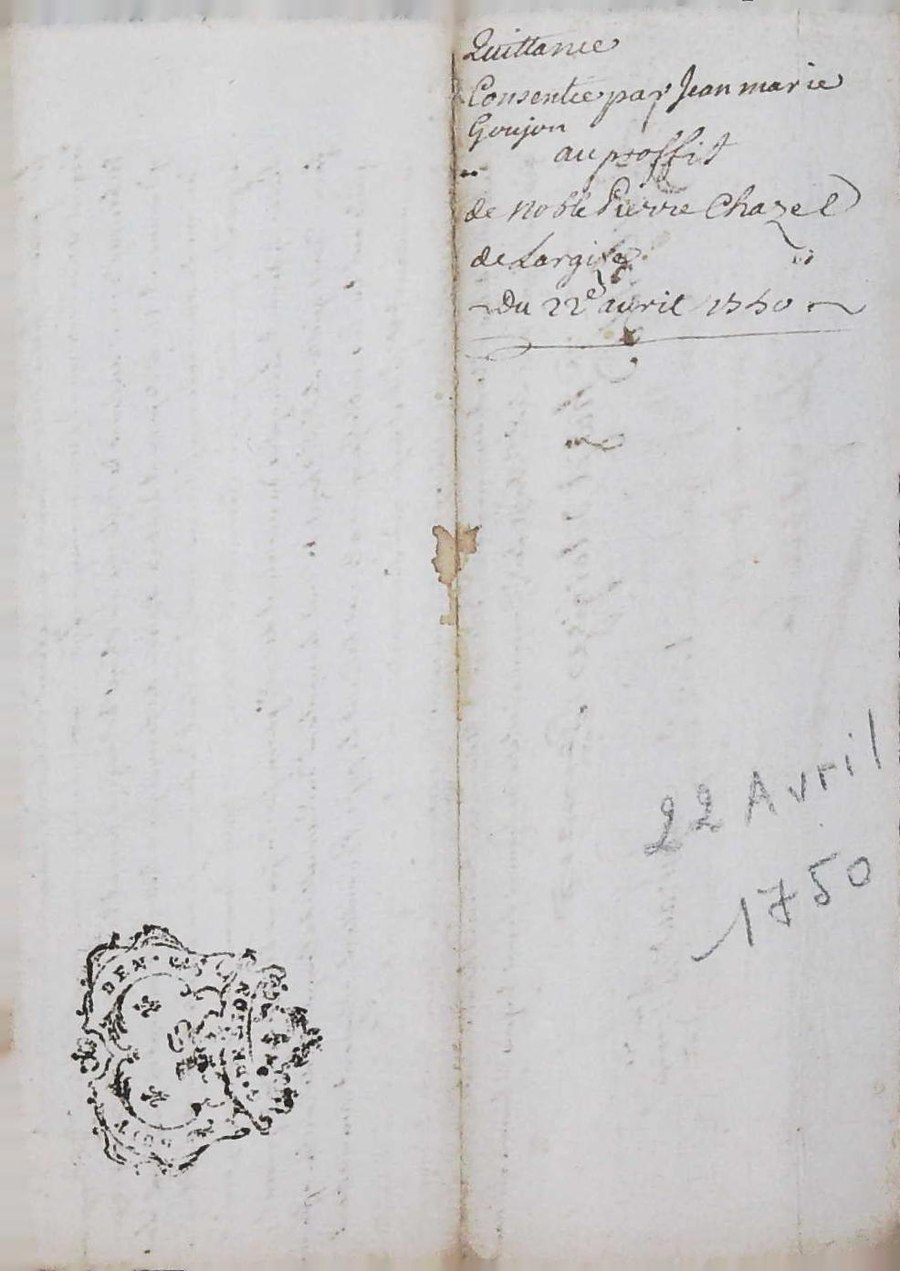 Quittance
Consentie par Jean marie
Goujon
au proffit
de noble Pierre Chazel
de
Du 22e avril 1750
22 Avril
1750
DEN